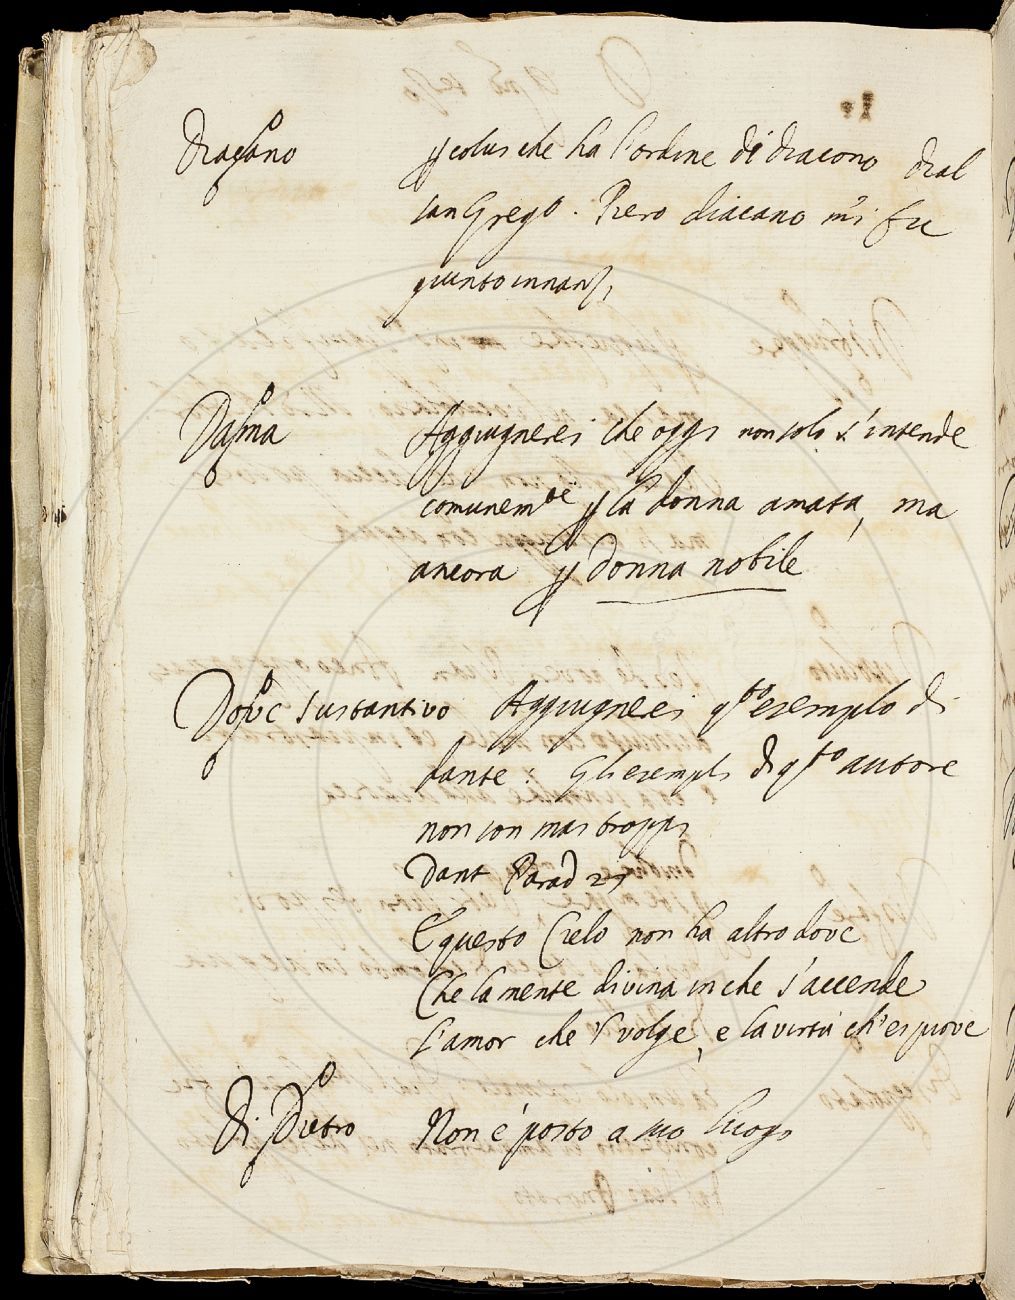 Diacano ꝑ colui che ha l'ordine di diacono Dial
san Greg.o. Piero diacano mi fu
giunto innanzi
Dama Aggiugnerei che oggi non solo s'intende
comunem.te ꝑ la donna amata, ma
ancora ꝑ donna nobile
Dove sustantivo Aggiugnerei q.to esempio di
dante: Gli esempli di q.to autore
non son mai troppi
Dant Parad 27
E questo Cielo non ha altro dove
Che la mente divina in che s'accende
L'amor che 'l volge, e la virtù ch'ei piove
Di Dietro Non è posto a suo luogo